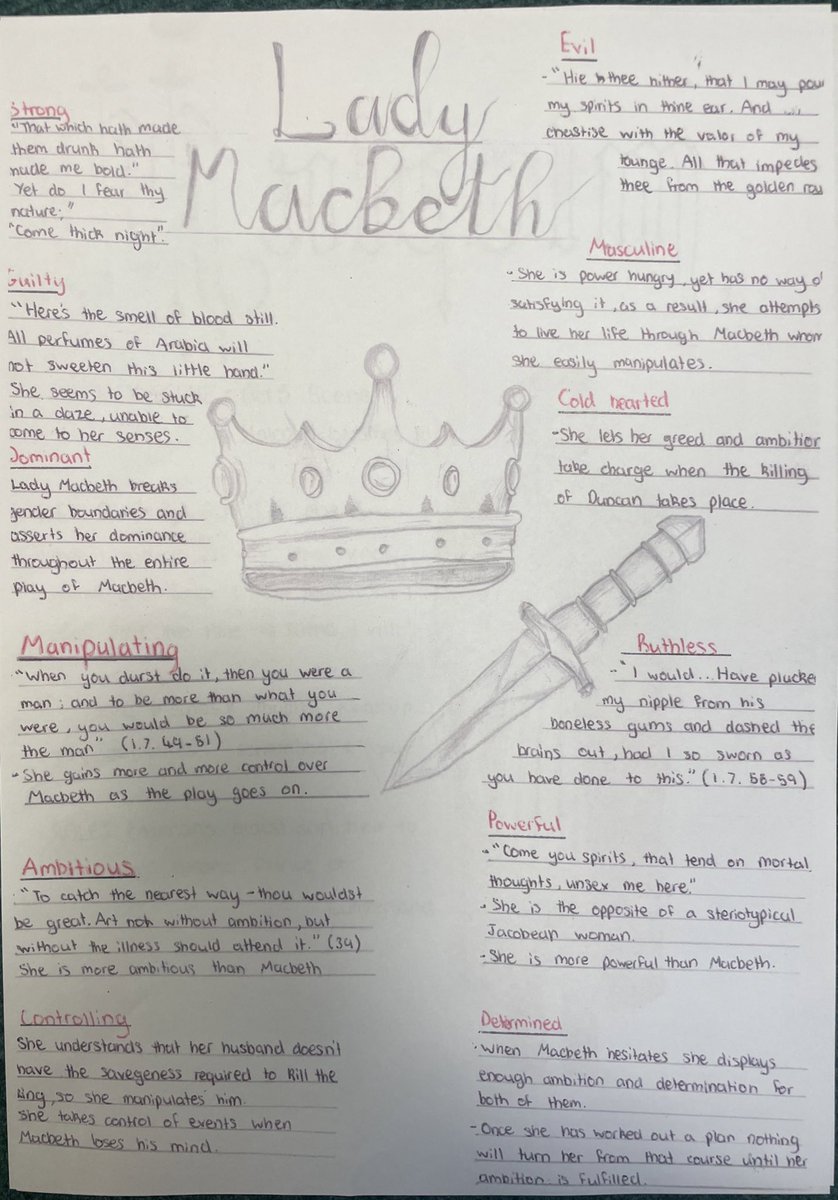 Lady
Macbeth
Strong
"That which hath made
them drunk hath
made me bold."
Yet do I fear thy
nature;"
"Come thick night".
Guilty
"Here's the smell of blood still.
All perfumes of Arabia will
not sweeten this little hand."
She seems to be stuck
in a daze, unable to
come to her senses.
Dominant
Lady Macbeth breaks
gender boundaries and
asserts her dominance
throughout the entire
play of Macbeth.
Manipulating
"When you durst do it, then you were a
man; and to be more than what you
were, you would be so much more
the man" (1.7. 49-51)
- She gains more and more control over
Macbeth as the play goes on.
Ambitious
"To catch the nearest way - thou wouldst
be great. Art not without ambition, but
without the illness should attend it." (34)
She is more ambitious than Macbeth
Controlling
She understands that her husband doesn't
have the savegeness required to kill the
king, so she manipulates him.
She takes control of events when
Macbeth loses his mind.
Evil
- "Hie thee hither, that I may pour
my spirits in thine ear. And ...
chastise with the valor of my
tounge. All that impedes
thee from the golden
Masculine
- She is power hungry, yet has no way of
satisfying it, as a result, she attempts
to live her life through Macbeth whom
she easily manipulates.
Cold hearted
- She lets her greed and ambition
take charge when the killing
of Duncan takes place.
Ruthless
- "I would... Have plucked
my nipple from his
boneless gums and dashed the
brains out, had I so sworn as
you have done to this." (1.7. 58-59)
Powerful
- "Come you spirits, that tend on mortal
thoughts, unsex me here."
- She is the opposite of a steriotypical
Jacobean woman.
- She is more powerful than Macbeth.
Determined
- When Macbeth hesitates she displays
enough ambition and determination for
both of them.
- Once she has worked out a plan nothing
will turn her from that course until her
ambition is fulfilled.